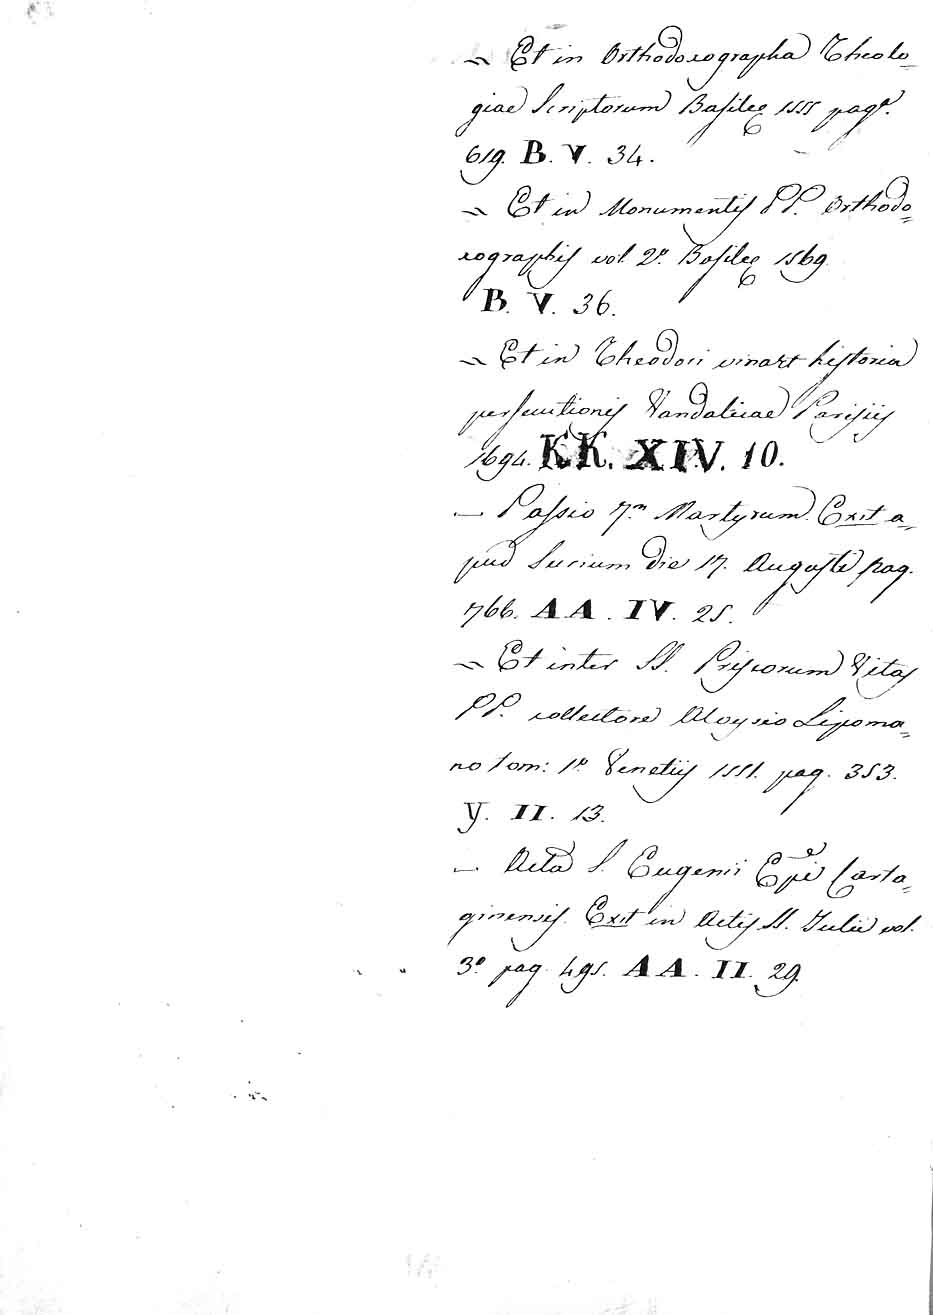 ~ Et in Orthodoxographa Theolo=
giae Scriptorum Basileę 1555 pagᵃ.
619. B. V. 34.
~ Et in Monumentis PP. Orthodo=
xographis vol. 2º. Basileę 1569
B. V. 36.
~ Et in Theodori vinart historia
persecutionis Vandalicae Parisiis
1694. KK. XIV. 10.
— Passio 7.m Martyrum. Exit a=
pud Surium die 17. Augusti pag.
766. AA. IV. 25.
~ Et inter SS. Priscorum Vitas
PP. collectore Aloysio Lipoma=
no tom: 1º Venetiis 1551. pag. 353.
Y. II. 13.
— Acta S. Eugenii Epi Carta=
ginensis. Exit in Actis SS. Julii vol.
3º pag. 495. AA. II. 29.